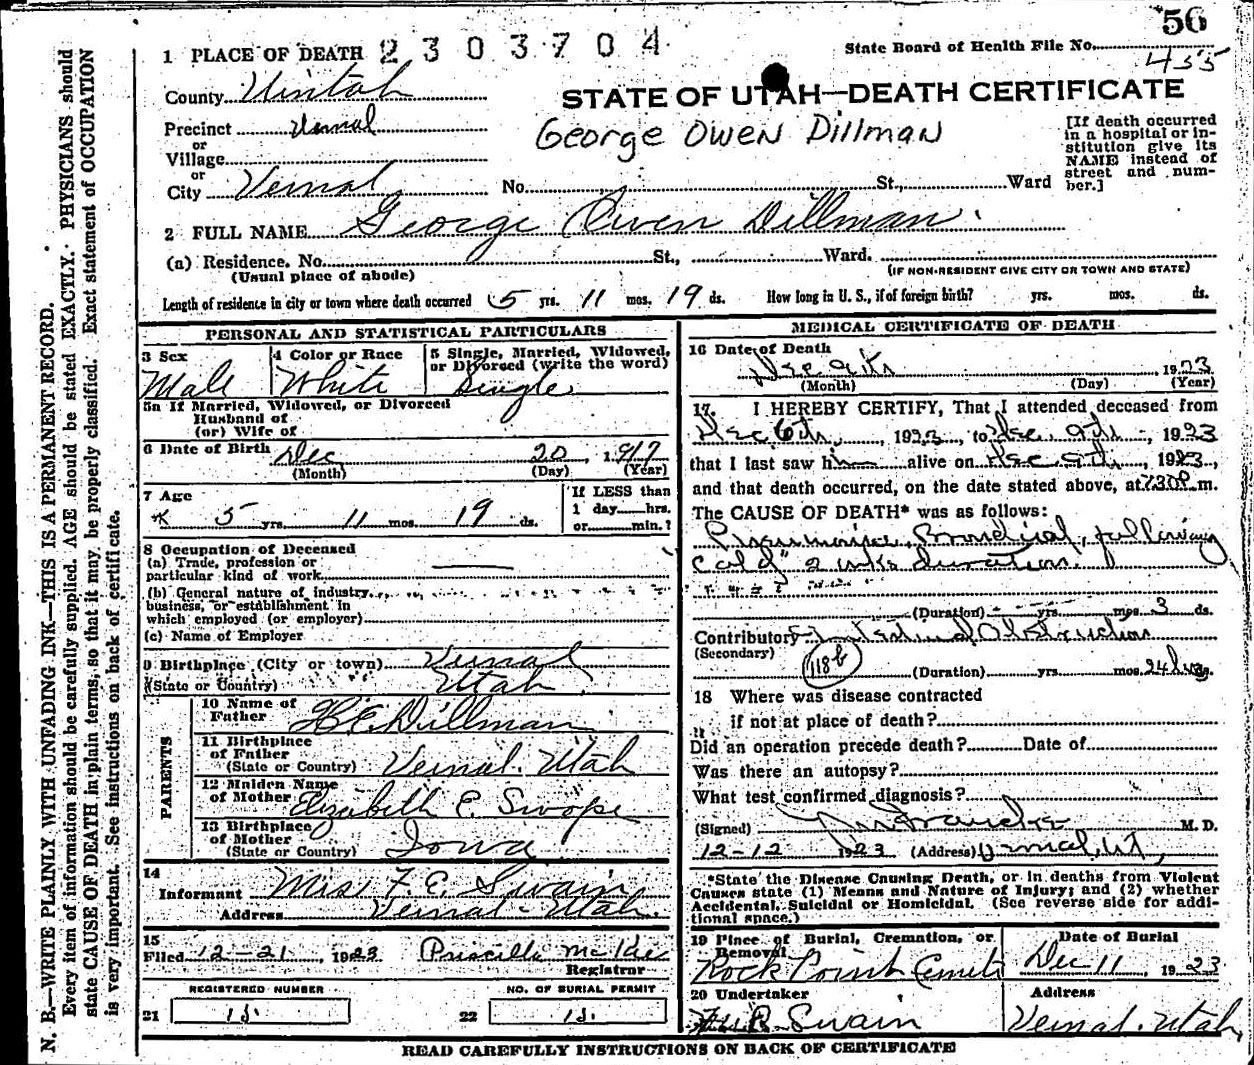 56
1 PLACE OF DEATH 2303704
State Board of Health File No. 455
County Uintah
STATE OF UTAH—DEATH CERTIFICATE
Precinct Vernal
George Owen Dillman
[If death occurred in a hospital or institution give its NAME instead of street and number.]
or
Village
or
City Vernal No. St., Ward
2 FULL NAME George Owen Dillman
(a) Residence. No. St., Ward.
(Usual place of abode) (IF NON-RESIDENT GIVE CITY OR TOWN AND STATE)
Length of residence in city or town where death occurred 5 yrs. 11 mos. 19 ds. How long in U. S., if of foreign birth? yrs. mos. ds.
PERSONAL AND STATISTICAL PARTICULARS
3 Sex
Male
4 Color or Race
White
5 Single, Married, Widowed, or Divorced (write the word)
Single
5a If Married, Widowed, or Divorced
Husband of
(or) Wife of
6 Date of Birth Dec 20, 1917
(Month) (Day) (Year)
7 Age
5 yrs. 11 mos. 19 ds.
If LESS than
1 day hrs.
or min.?
8 Occupation of Deceased
(a) Trade, profession or
particular kind of work
(b) General nature of industry,
business, or establishment in
which employed (or employer)
(c) Name of Employer
9 Birthplace (City or town) Vernal
(State or Country) Utah
PARENTS
10 Name of
Father H E Dillman
11 Birthplace
of Father
(State or Country) Vernal. Utah
12 Maiden Name
of Mother Elizabeth E. Swope
13 Birthplace
of Mother
(State or Country) Iowa
14
Informant Mrs F. E. Swain
Address Vernal - Utah.
15
Filed 12-21, 1923 Priscilla McKee
Registrar
REGISTERED NUMBER
21
NO. OF BURIAL PERMIT
22
MEDICAL CERTIFICATE OF DEATH
16 Date of Death
Dec 9th 1923
(Month) (Day) (Year)
17. I HEREBY CERTIFY, That I attended deceased from
Dec 6th, 1923, to Dec. 9th, 1923
that I last saw him alive on Dec 9th, 1923,
and that death occurred, on the date stated above, at 7:30P m.
The CAUSE OF DEATH* was as follows:
Pneumonia, Bronchial, following
cold 2 wks duration.
(Duration) yrs. mos. 3 ds.
Contributory Intestinal Obstruction
(Secondary)
118b
(Duration) yrs. mos. 24 hrs.
18 Where was disease contracted
if not at place of death?
Did an operation precede death? Date of
Was there an autopsy?
What test confirmed diagnosis?
(Signed) M. D.
12-12 1923 (Address) Vernal, Ut,
*State the Disease Causing Death, or in deaths from Violent
Causes state (1) Means and Nature of Injury; and (2) whether
Accidental, Suicidal or Homicidal. (See reverse side for addi-
tional space.)
19 Place of Burial, Cremation, or
Removal
Rock Point Cemete
Date of Burial
Dec 11, 1923
20 Undertaker
Swain
Address
Vernal. Utah,
READ CAREFULLY INSTRUCTIONS ON BACK OF CERTIFICATE
N. B.—WRITE PLAINLY WITH UNFADING INK—THIS IS A PERMANENT RECORD.
Every item of information should be carefully supplied. AGE should be stated EXACTLY. PHYSICIANS should
state CAUSE OF DEATH in plain terms, so that it may be properly classified. Exact statement of OCCUPATION
is very important. See instructions on back of certificate.